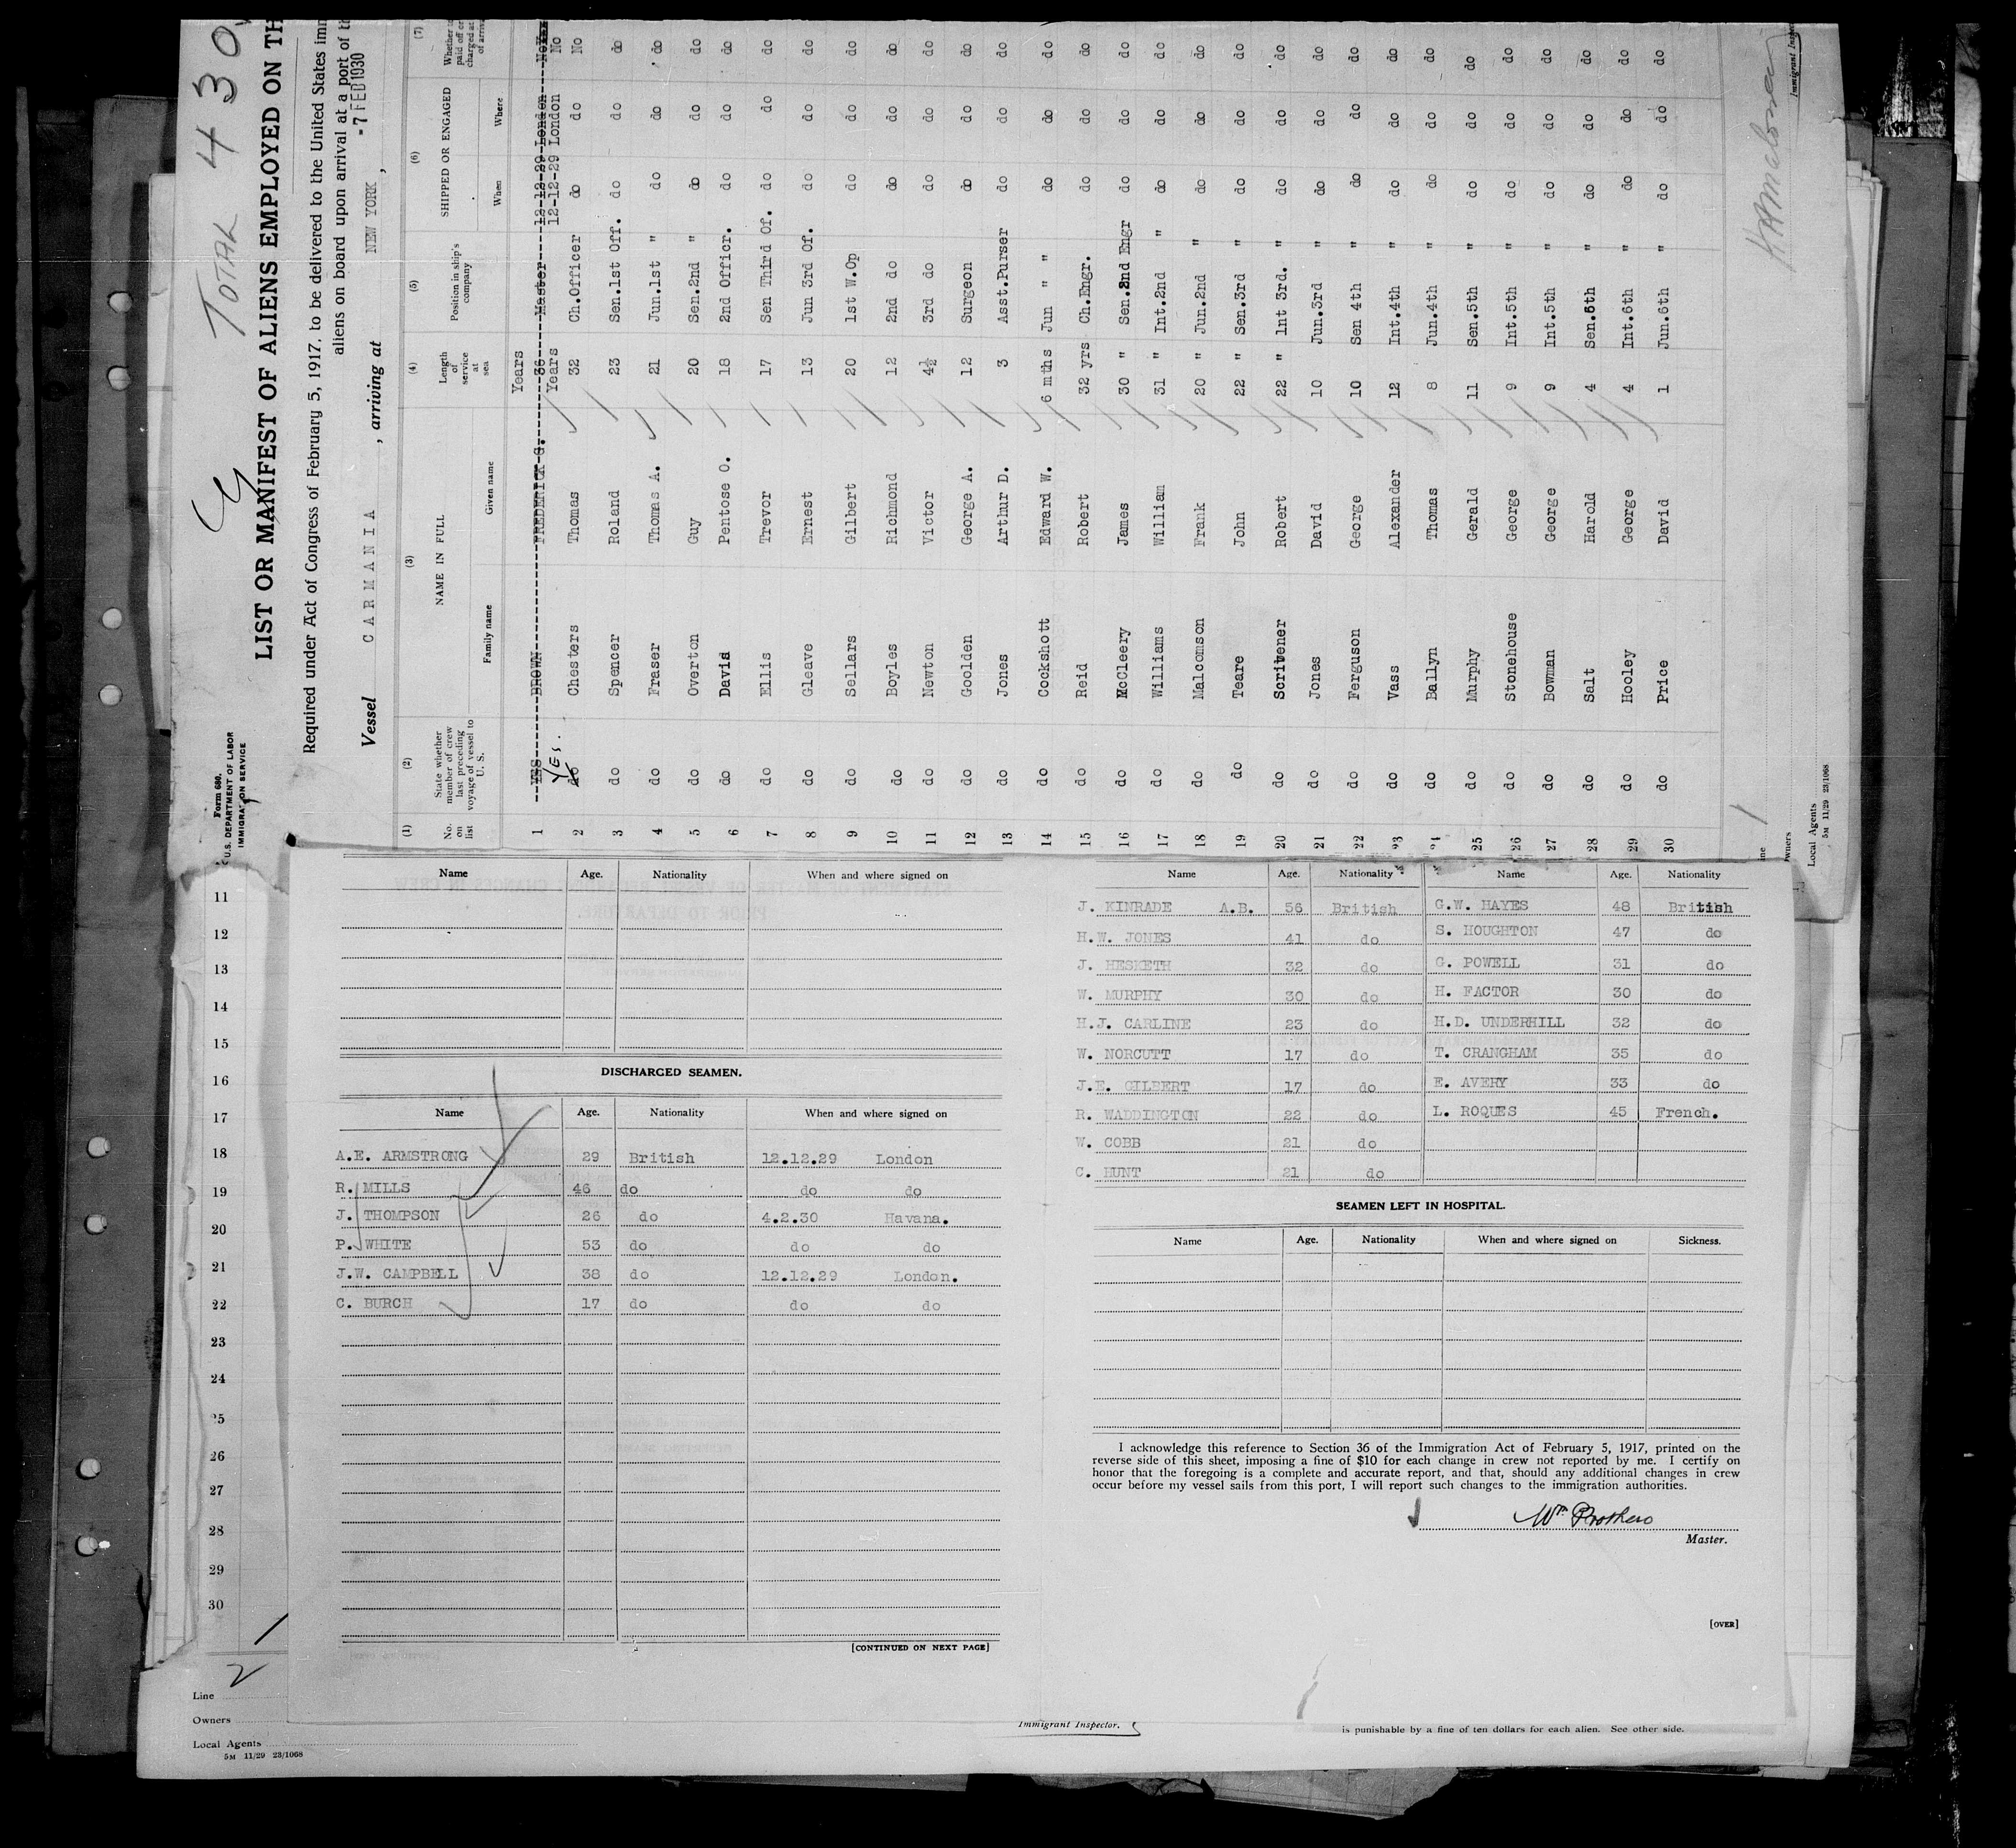 TOTAL 430
Form 680.
U.S. DEPARTMENT OF LABOR
IMMIGRATION SERVICE
LIST OR MANIFEST OF ALIENS EMPLOYED ON TH
Required under Act of Congress of February 5, 1917, to be delivered to the United States imm
aliens on board upon arrival at a port of th
Vessel CARMANIA, arriving at NEW YORK, -7 FEB 1930
(1) (2) (3) (4) (5) (6) (7)
No. on list State whether member of crew last preceding voyage of vessel to U. S. NAME IN FULL Length of service at sea Position in ship's company SHIPPED OR ENGAGED Whether to paid off or charged at of arriva
Family name Given name When Where
Years
1 YES BROWN FREDERICK G. 36 Master 12-12-29 London
Yes. Years 12-12-29 London No
2 do Chesters Thomas 32 Ch.Officer do do No
3 do Spencer Roland 23 Sen.1st Off. do do do
4 do Fraser Thomas A. 21 Jun.1st " do do do
5 do Overton Guy 20 Sen.2nd " do do do
6 do David Pentose O. 18 2nd Officr. do do do
7 do Ellis Trevor 17 Sen Third Of. do do do
8 do Gleave Ernest 13 Jun 3rd Of. do do do
9 do Sellars Gilbert 20 1st W.Op do do do
10 do Boyles Richmond 12 2nd do do do do
11 do Newton Victor 4½ 3rd do do do do
12 do Goolden George A. 12 Surgeon do do do
13 do Jones Arthur D. 3 Asst.Purser do do do
14 do Cockshott Edward W. 6 mths Jun " " do do do
15 do Reid Robert 32 yrs Ch.Engr. do do do
16 do McCleery James 30 " Sen.2nd Engr do do do
17 do Williams William 31 " Int.2nd " do do do
18 do Malcomson Frank 20 " Jun.2nd " do do do
19 do Teare John 22 " Sen.3rd " do do do
20 do Scrivener Robert 22 " Int 3rd. " do do do
21 do Jones David 10 Jun.3rd " do do do
22 do Ferguson George 10 Sen 4th " do do do
23 do Vass Alexander 12 Int.4th " do do do
24 do Ballyn Thomas 8 Jun.4th " do do do
25 do Murphy Gerald 11 Sen.5th " do do do
26 do Stonehouse George 9 Int.5th " do do do
27 do Bowman George 9 Int.5th " do do do
28 do Salt Harold 4 Sen.6th " do do do
29 do Hooley George 4 Int.6th " do do do
30 do Price David 1 Jun.6th " do do do
Immigrant Inspec
ine 1
wners
Local Agents
5M 11/29 23/1068
Name Age. Nationality When and where signed on
11
12
13
14
15
16
17
18
19
20
21
22
23
24
25
26
27
28
29
30
DISCHARGED SEAMEN.
Name Age. Nationality When and where signed on
A.E. ARMSTRONG 29 British 12.12.29 London
R. MILLS 46 do do do
J. THOMPSON 26 do 4.2.30 Havana.
P. WHITE 53 do do do
J.W. CAMPBELL 38 do 12.12.29 London.
C. BURCH 17 do do do
[CONTINUED ON NEXT PAGE]
Name Age. Nationality Name Age. Nationality
J. KINRADE A.B. 56 British G.W. HAYES 48 British
H.W. JONES 41 do S. HOUGHTON 47 do
J. HESKETH 32 do G. POWELL 31 do
W. MURPHY 30 do H. FACTOR 30 do
H.J. CARLINE 23 do H.D. UNDERHILL 32 do
W. NORCUTT 17 do T. CRANGHAM 35 do
J.E. GILBERT 17 do E. AVERY 33 do
R. WADDINGTON 22 do L. ROQUES 45 French.
W. COBB 21 do
C. HUNT 21 do
SEAMEN LEFT IN HOSPITAL.
Name Age. Nationality When and where signed on Sickness.
I acknowledge this reference to Section 36 of the Immigration Act of February 5, 1917, printed on the
reverse side of this sheet, imposing a fine of $10 for each change in crew not reported by me. I certify on
honor that the foregoing is a complete and accurate report, and that, should any additional changes in crew
occur before my vessel sails from this port, I will report such changes to the immigration authorities.
Wm Prothero
Master.
[OVER]
2
Line
Owners
Local Agents
5M 11/29 23/1068
Immigrant Inspector.
is punishable by a fine of ten dollars for each alien. See other side.